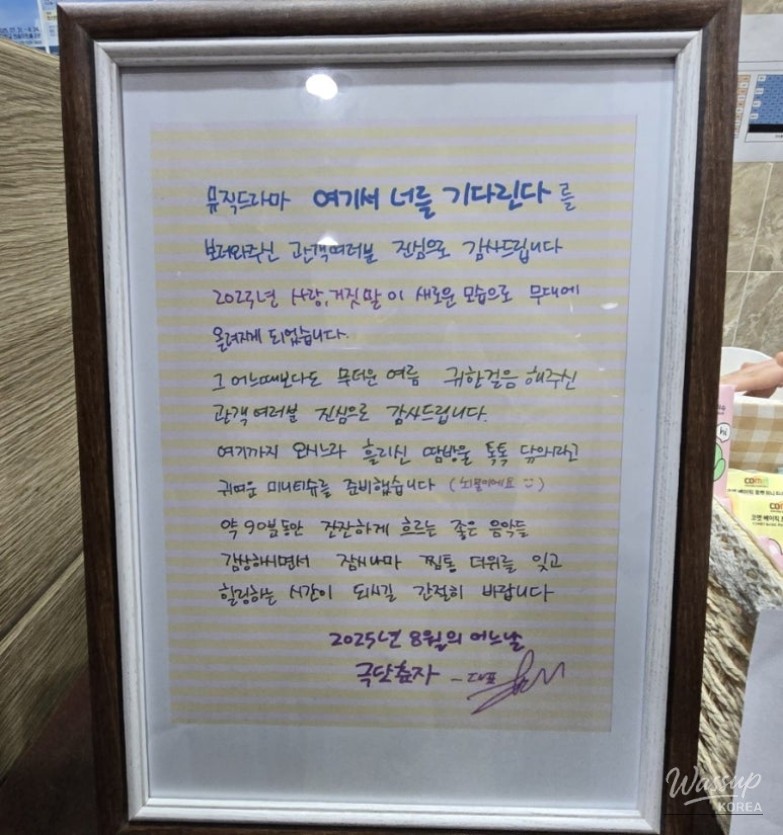 뮤직드라마 여기서 너를 기다린다 를
보러와주신 관객여러분 진심으로 감사드립니다
2025년 사랑,거짓말이 새로운 모습으로 무대에
올려지게 되었습니다.
그 어느때보다도 무더운 여름 귀한걸음 해주신
관객여러분 진심으로 감사드립니다.
여기까지 오시느라 흘리신 땀방울 톡톡 닦으시라고
귀여운 미니티슈를 준비했습니다 (뇌물이에요 :))
약 90분동안 잔잔하게 흐르는 좋은 음악들
감상하시면서 잠시나마 찜통 더위를 잊고
힐링하는 시간이 되시길 간절히 바랍니다
2025년 8월의 어느날
극단춤자 - 대표
hi
Wassup
KOREA